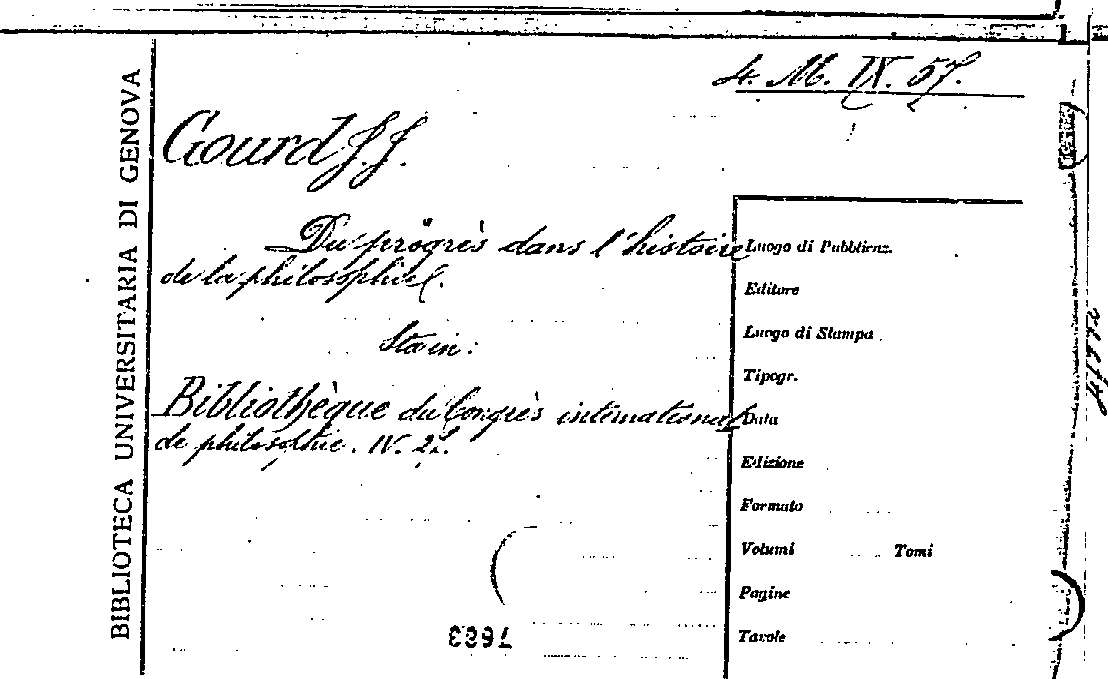 4. M. IX. 57.
BIBLIOTECA UNIVERSITARIA DI GENOVA
Gourd J. J.
Du progrès dans l'histoire
de la philosophie.
Sta in:
Bibliothèque du Congrès international
de philosophie. IV. 22.
Luogo di Pubblicaz.
Editore
Luogo di Stampa
Tipogr.
Data
Edizione
Formato
Volumi Tomi
Pagine
Tavole